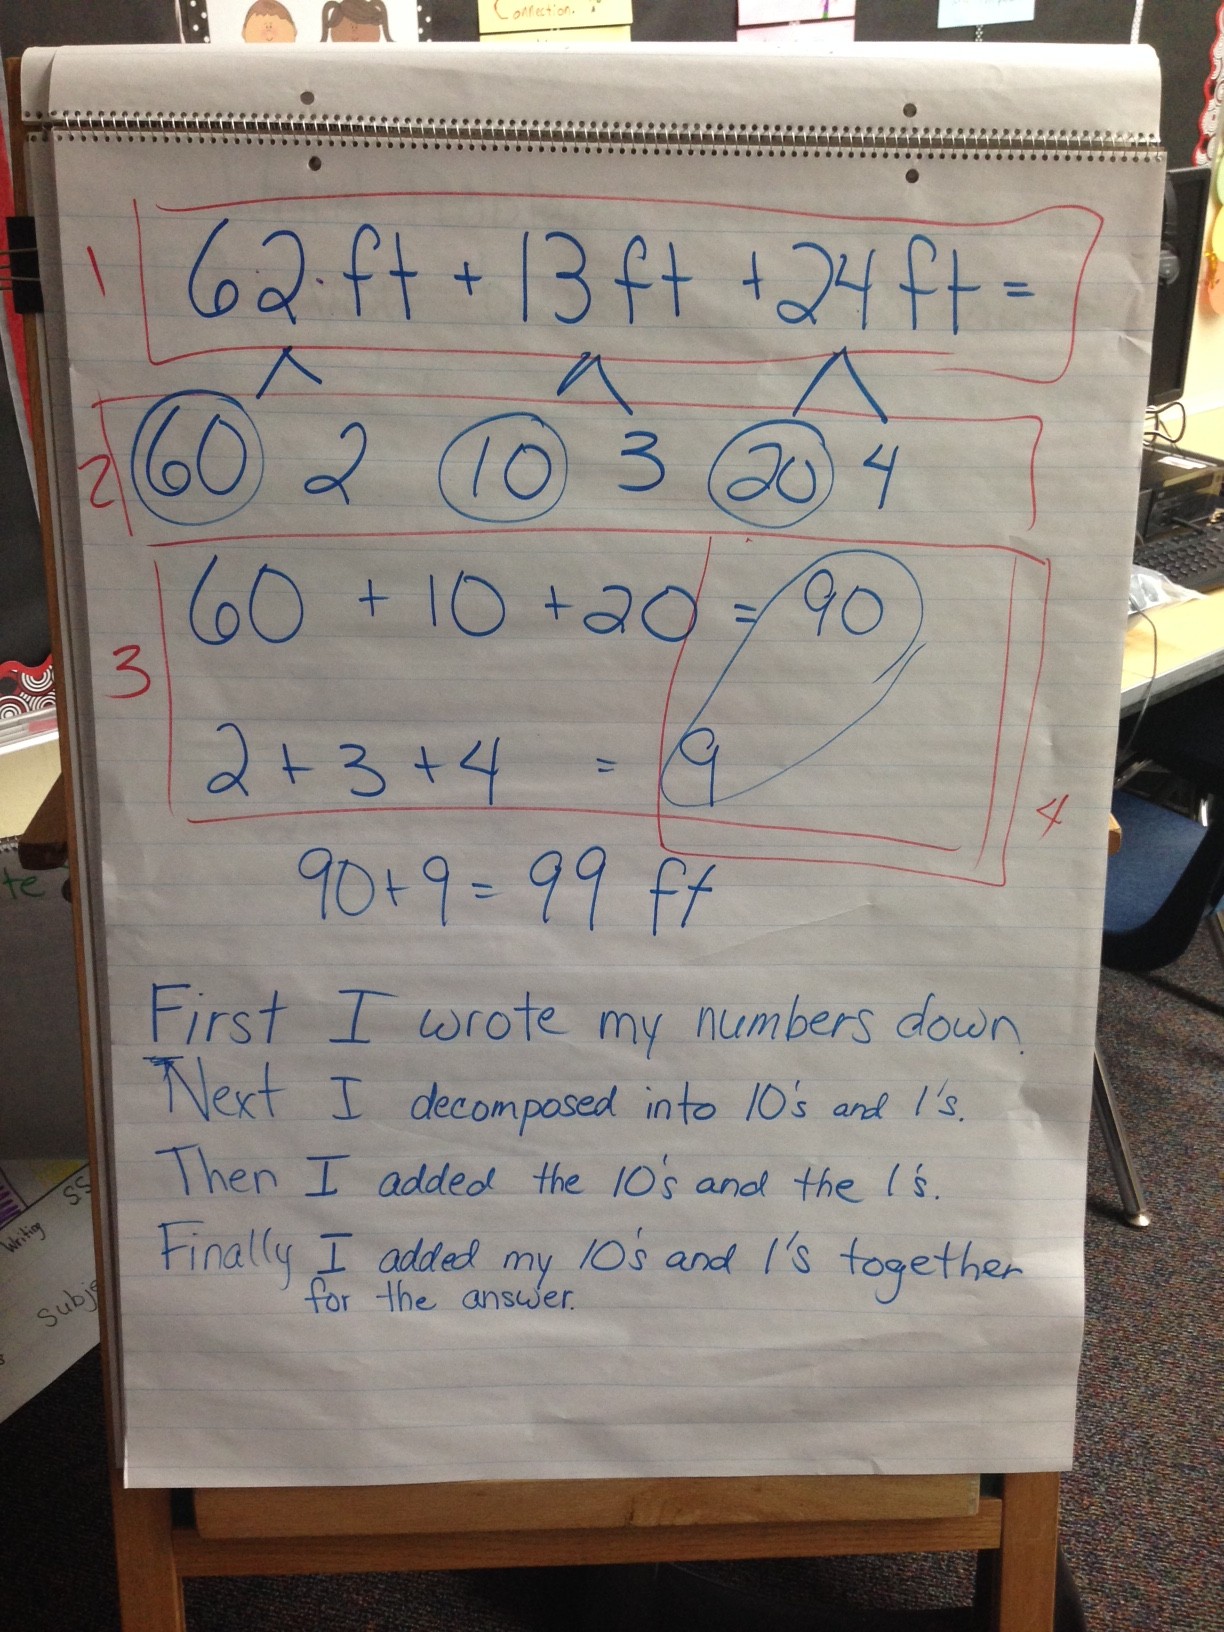 Connection.
1 62 ft + 13 ft + 24 ft =
2 60 2 10 3 20 4
3 60 + 10 + 20 = 90
2 + 3 + 4 = 9
4
90 + 9 = 99 ft
First I wrote my numbers down.
Next I decomposed into 10's and 1's.
Then I added the 10's and the 1's.
Finally I added my 10's and 1's together
for the answer.
te
SS
Writing
Subj